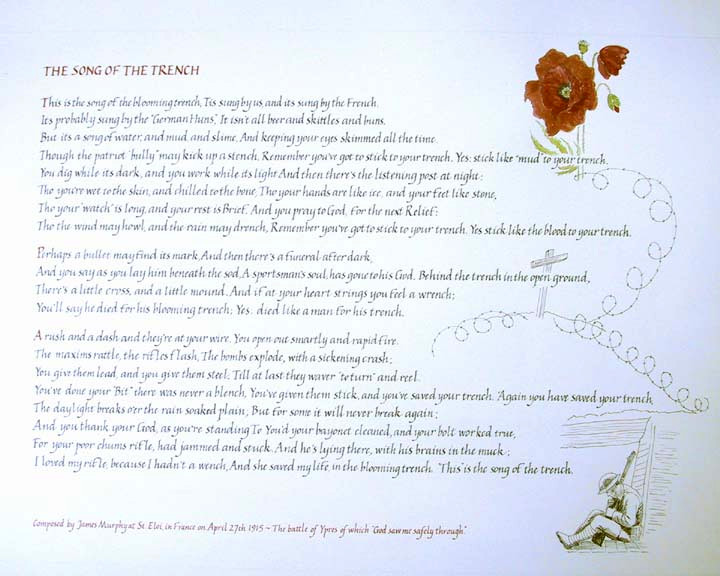 THE SONG OF THE TRENCH
This is the song of the blooming trench, Tis sung by us, and its sung by the French.
Its probably sung by the "German Huns", It isn't all beer and skittles and buns.
But its a song of water, and mud, and slime, And keeping your eyes skimmed all the time.
Though the patriot "bully" may kick up a stench, Remember you've got to stick to your trench. Yes: stick like "mud" to your trench.
You dig while its dark, and you work while its light And then there's the listening post at night:
Tho you're wet to the skin, and chilled to the bone, Tho your hands are like ice, and your feet like stone,
Tho your "watch" is long, and your rest is Brief, And you pray to God, for the next Relief;
Tho the wind may howl, and the rain may drench, Remember you've got to stick to your trench. Yes stick like the blood to your trench.
Perhaps a bullet may find its mark, And then there's a funeral after dark,
And you say as you lay him beneath the sod, A sportsman's soul, has gone to his God. Behind the trench in the open ground,
There's a little cross, and a little mound. And if at your heart strings you feel a wrench;
You'll say he died for his blooming trench; Yes: died like a man for his trench.
A rush and a dash and they're at your wire. You open out smartly and rapid fire.
The maxims rattle, the rifles flash, The bombs explode, with a sickening crash;
You give them lead, and you give them steel; Till at last they waver "to turn" and reel.
You've done your "Bit" there was never a blench, You've given them stick, and you've saved your trench. 'Again you have saved your trench.
The daylight breaks o'er the rain soaked plain, But for some it will never break again;
And you thank your God, as you're "standing To" You'd your bayonet cleaned, and your bolt worked true,
For your poor chums rifle, had jammed and stuck. And he's lying there, with his brains in the muck;
I loved my rifle, because I hadn't a wench, And she saved my life, in the blooming trench. "This" is the song of the trench.
Composed by James Murphy at St. Eloi, in France on April 27th 1915 ~ The battle of Ypres of which "God saw me safely through".